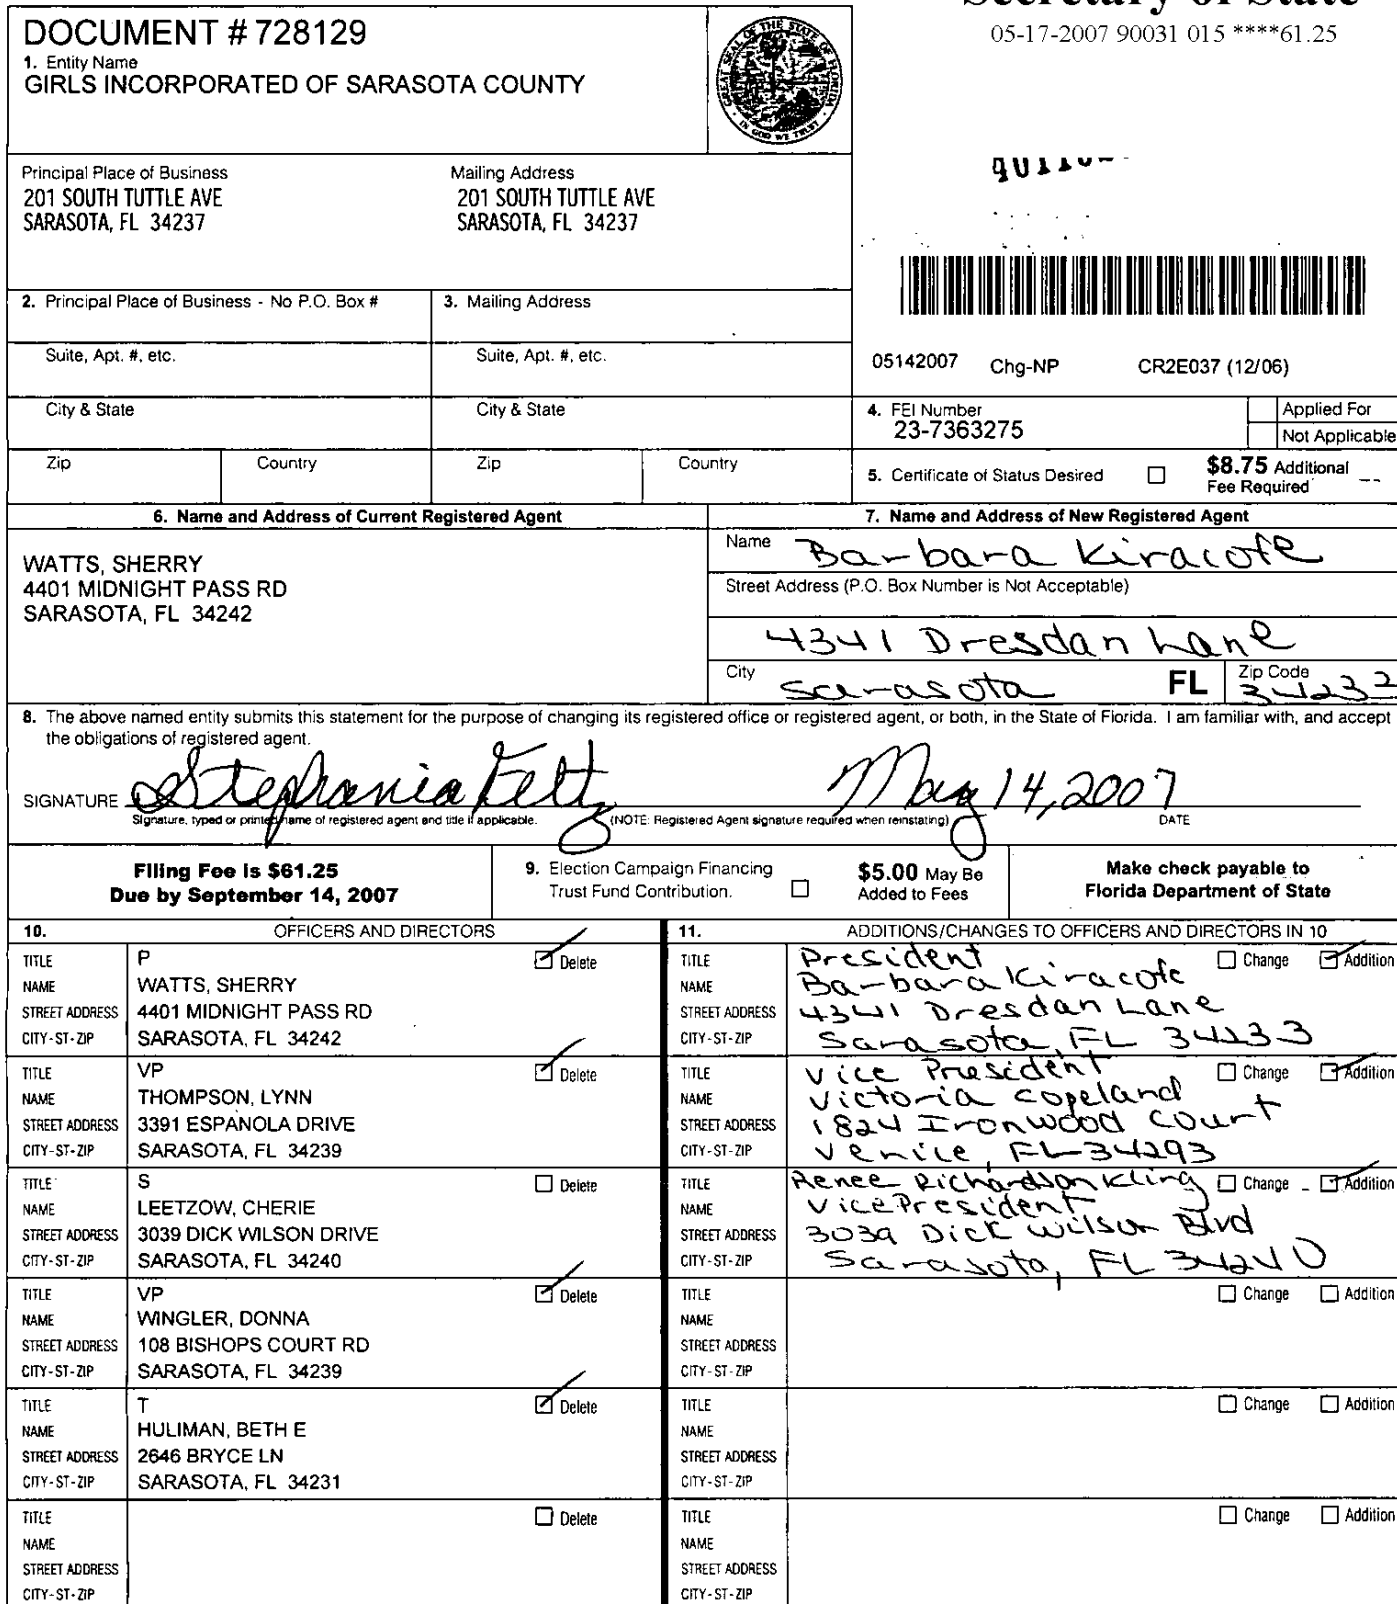 Secretary of State
05-17-2007 90031 015 ****61.25
DOCUMENT # 728129
1. Entity Name
GIRLS INCORPORATED OF SARASOTA COUNTY
GREAT SEAL OF THE STATE OF FLORIDA
IN GOD WE TRUST
Principal Place of Business
201 SOUTH TUTTLE AVE
SARASOTA, FL 34237
Mailing Address
201 SOUTH TUTTLE AVE
SARASOTA, FL 34237
2. Principal Place of Business - No P.O. Box #
3. Mailing Address
Suite, Apt. #, etc.
Suite, Apt. #, etc.
05142007 Chg-NP CR2E037 (12/06)
City & State
City & State
4. FEI Number
23-7363275
Applied For
Not Applicable
Zip Country Zip Country
5. Certificate of Status Desired
$8.75 Additional
Fee Required
6. Name and Address of Current Registered Agent
WATTS, SHERRY
4401 MIDNIGHT PASS RD
SARASOTA, FL 34242
7. Name and Address of New Registered Agent
Name Barbara Kiracofe
Street Address (P.O. Box Number is Not Acceptable)
4341 Dresdan Lane
City Sarasota FL Zip Code 34233
8. The above named entity submits this statement for the purpose of changing its registered office or registered agent, or both, in the State of Florida. I am familiar with, and accept
the obligations of registered agent.
SIGNATURE Stephania Feltz May 14, 2007
Signature, typed or printed name of registered agent and title if applicable. (NOTE: Registered Agent signature required when reinstating) DATE
Filing Fee is $61.25
Due by September 14, 2007
9. Election Campaign Financing
Trust Fund Contribution.
$5.00 May Be
Added to Fees
Make check payable to
Florida Department of State
10. OFFICERS AND DIRECTORS
TITLE P Delete
NAME WATTS, SHERRY
STREET ADDRESS 4401 MIDNIGHT PASS RD
CITY-ST-ZIP SARASOTA, FL 34242
TITLE VP Delete
NAME THOMPSON, LYNN
STREET ADDRESS 3391 ESPANOLA DRIVE
CITY-ST-ZIP SARASOTA, FL 34239
TITLE S Delete
NAME LEETZOW, CHERIE
STREET ADDRESS 3039 DICK WILSON DRIVE
CITY-ST-ZIP SARASOTA, FL 34240
TITLE VP Delete
NAME WINGLER, DONNA
STREET ADDRESS 108 BISHOPS COURT RD
CITY-ST-ZIP SARASOTA, FL 34239
TITLE T Delete
NAME HULIMAN, BETH E
STREET ADDRESS 2646 BRYCE LN
CITY-ST-ZIP SARASOTA, FL 34231
TITLE Delete
NAME
STREET ADDRESS
CITY-ST-ZIP
11. ADDITIONS/CHANGES TO OFFICERS AND DIRECTORS IN 10
TITLE President Change Addition
NAME Barbara Kiracofe
STREET ADDRESS 4341 Dresdan Lane
CITY-ST-ZIP Sarasota, FL 34233
TITLE Vice President Change Addition
NAME Victoria Copeland
STREET ADDRESS 1824 Ironwood Court
CITY-ST-ZIP Venice, FL 34293
TITLE Renee Richardson Kling Change Addition
NAME Vice President
STREET ADDRESS 3039 Dick Wilson Blvd
CITY-ST-ZIP Sarasota, FL 34240
TITLE Change Addition
NAME
STREET ADDRESS
CITY-ST-ZIP
TITLE Change Addition
NAME
STREET ADDRESS
CITY-ST-ZIP
TITLE Change Addition
NAME
STREET ADDRESS
CITY-ST-ZIP